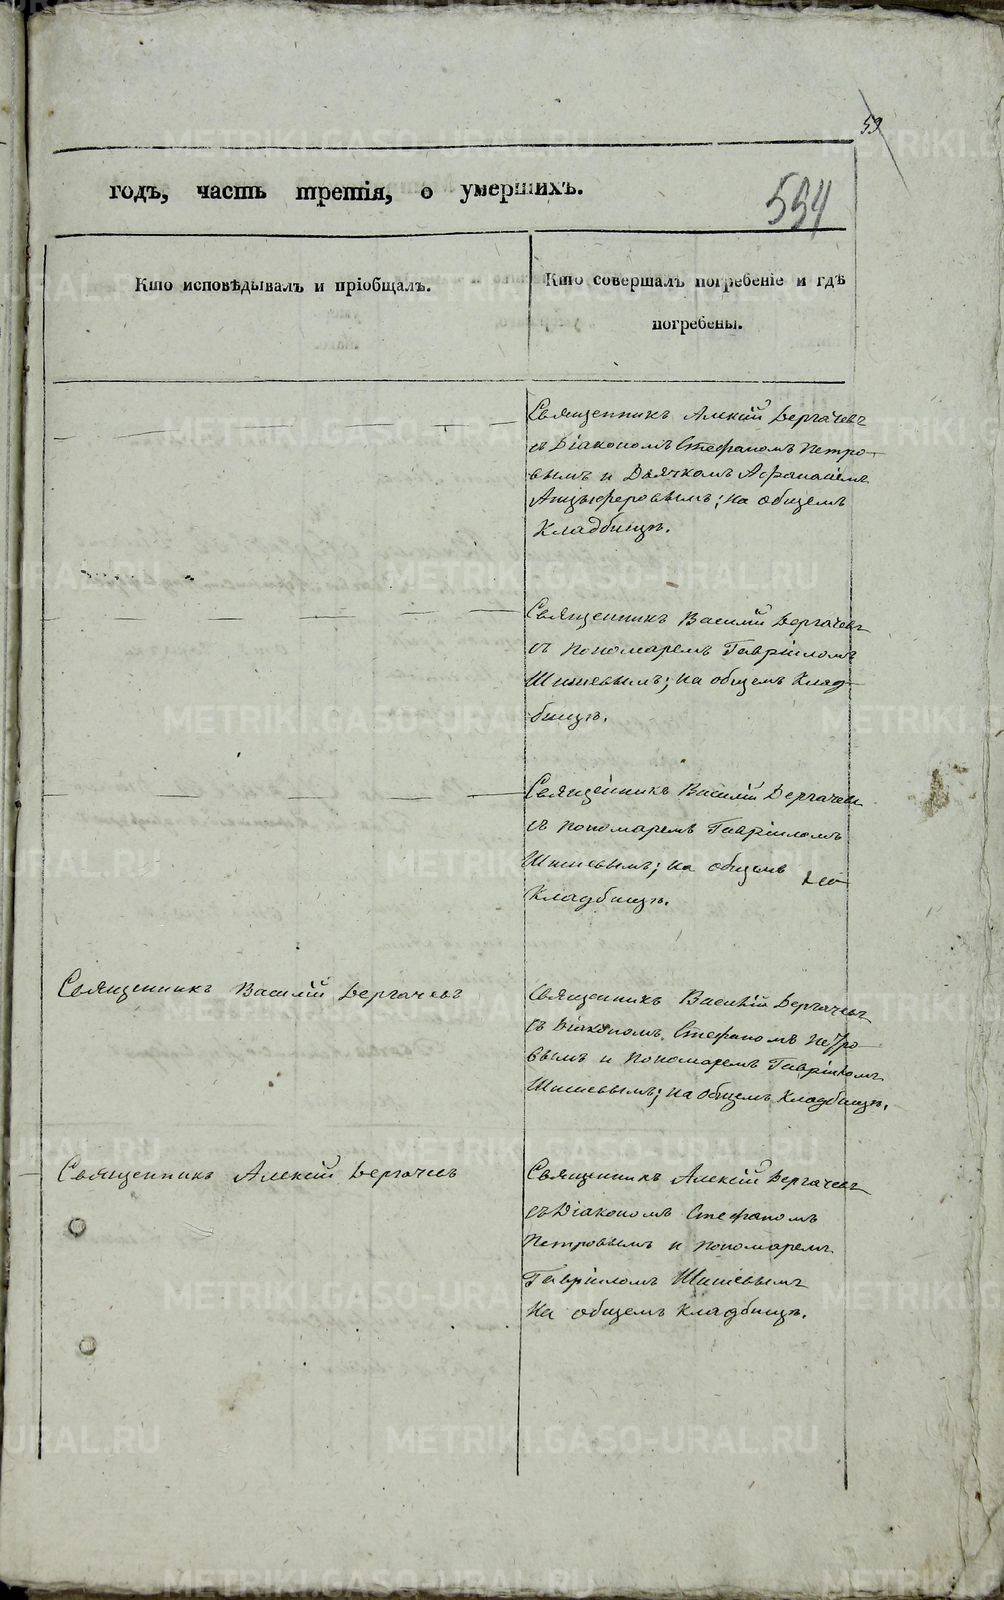 59
годъ, часть третія, о умершихъ.
594
Кто исповѣдывалъ и пріобщалъ.
Кто совершалъ погребеніе и гдѣ
погребены.
Священникъ Алексій Дергачевъ
съ Діакономъ Стефаномъ Петро-
вымъ и Дьячкомъ Афанасіемъ
Анцыферовымъ; на общемъ
Кладбищѣ.
Священникъ Василій Дергачевъ
съ пономаремъ Гавріиломъ
Шишевымъ; на общемъ Клад-
бищѣ.
Священникъ Василій Дергачевъ
съ пономаремъ Гавріиломъ
Шишевымъ; на общемъ
Кладбищѣ.
Священникъ Василій Дергачевъ
Священникъ Василій Дергачевъ
съ Діакономъ Стефаномъ Петро-
вымъ и пономаремъ Гавріиломъ
Шишевымъ; на общемъ Кладбищѣ.
Священникъ Алексій Дергачевъ
Священникъ Алексій Дергачевъ
съ Діакономъ Стефаномъ
Петровымъ и пономаремъ
Гавріиломъ Шишевымъ
На общемъ кладбищѣ.
METRIKI.GASO-URAL.RU